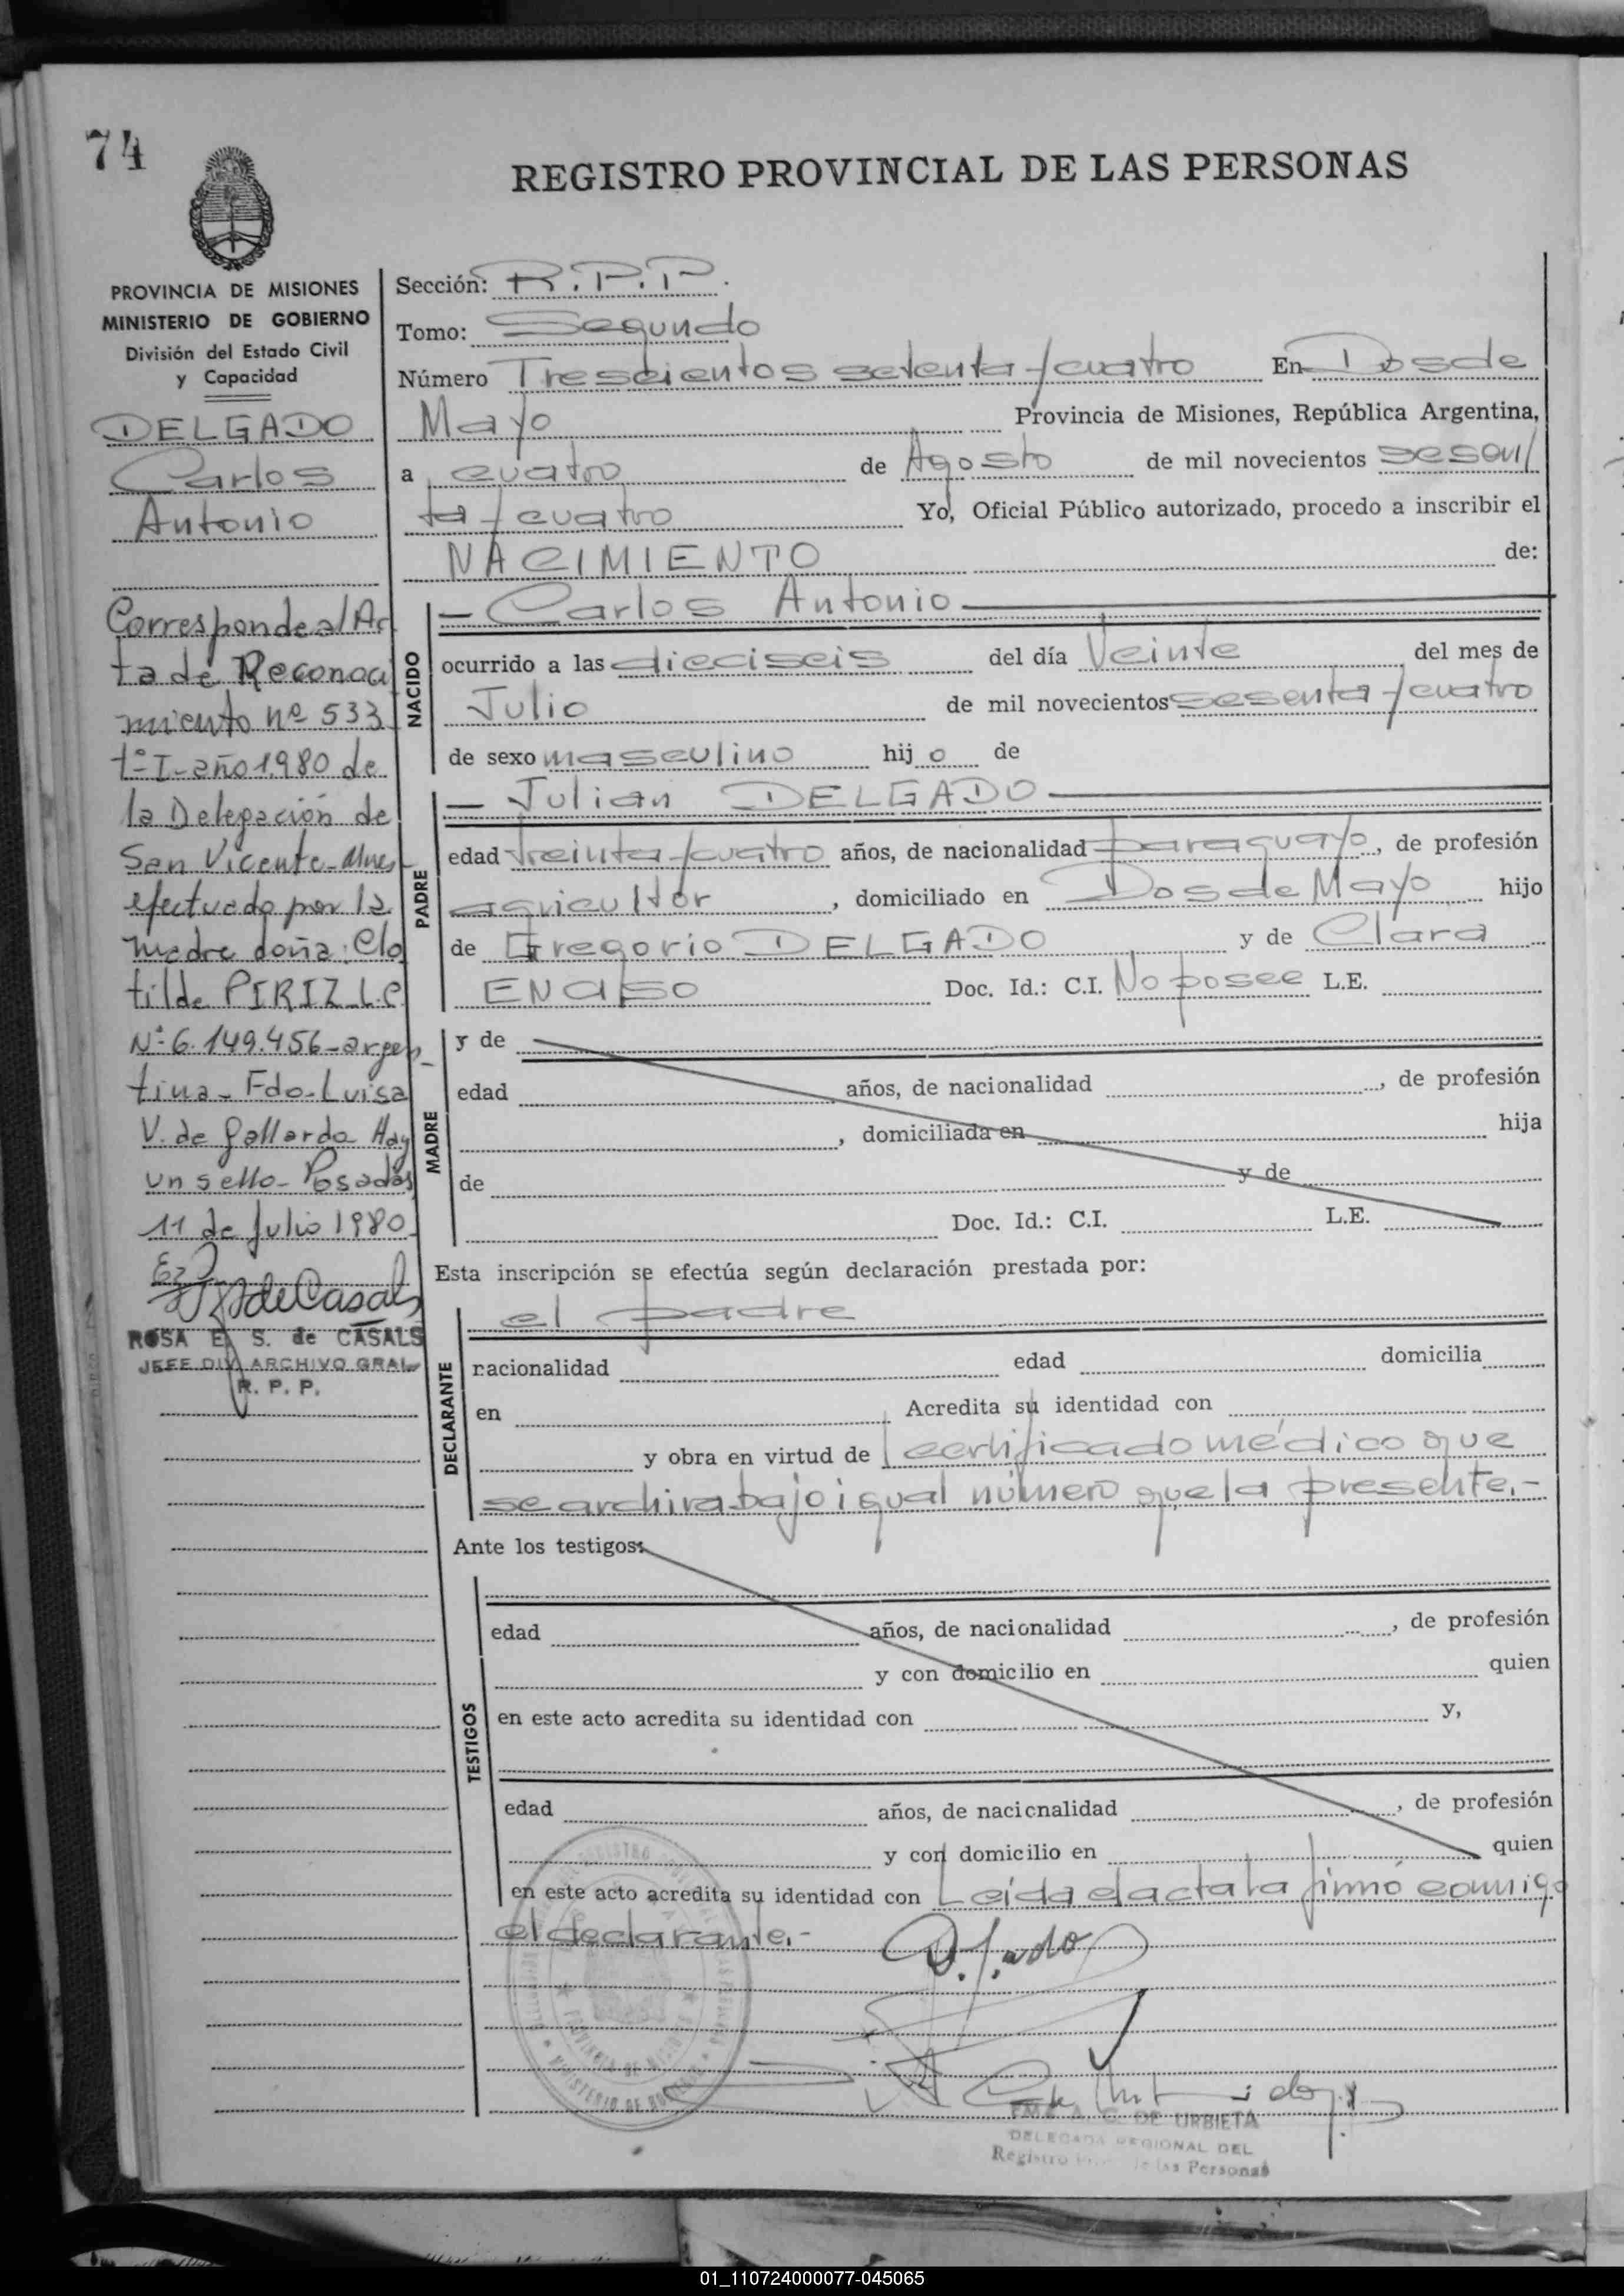 74
REGISTRO PROVINCIAL DE LAS PERSONAS
PROVINCIA DE MISIONES
MINISTERIO DE GOBIERNO
División del Estado Civil
y Capacidad
DELGADO
Carlos
Antonio
Corresponde al Ac
ta de Reconoci
miento nº 533
tº I - año 1980 de
la Delegación de
San Vicente - Mnes
efectuado por la
madre doña: Clo
tilde PIRIZ L.C.
Nº 6.149.456 - argen
tina - Fdo - Luisa
V. de Gallardo Hay
un sello - Posadas
11 de Julio 1980
de Casals
ROSA E. S. de CASALS
JEFE DIV. ARCHIVO GRAL.
R. P. P.
Sección: R.P.P.
Tomo: Segundo
Número Trescientos setenta y cuatro En Dos de
Mayo Provincia de Misiones, República Argentina,
a cuatro de Agosto de mil novecientos sesen/
ta y cuatro Yo, Oficial Público autorizado, procedo a inscribir el
NACIMIENTO de:
NACIDO
— Carlos Antonio —
ocurrido a las dieciseis del día Veinte del mes de
Julio de mil novecientos sesenta y cuatro
de sexo masculino hijo de
PADRE
— Julian DELGADO —
edad treinta y cuatro años, de nacionalidad paraguayo, de profesión
agricultor, domiciliado en Dos de Mayo hijo
de Gregorio DELGADO y de Clara
ENCISO Doc. Id.: C.I. No posee L.E.
MADRE
y de
edad años, de nacionalidad , de profesión
, domiciliada en hija
de y de
Doc. Id.: C.I. L.E.
Esta inscripción se efectúa según declaración prestada por:
DECLARANTE
el padre
nacionalidad edad domicilia
en Acredita su identidad con
y obra en virtud de certificado médico que
se archiva bajo igual número que la presente.-
Ante los testigos:
TESTIGOS
edad años, de nacionalidad , de profesión
y con domicilio en quien
en este acto acredita su identidad con y,
edad años, de nacionalidad , de profesión
y con domicilio en quien
en este acto acredita su identidad con Leída el acta la firmó conmigo
el declarante.-
DE URBIETA
DELEGADA REGIONAL DEL
Registro de las Personas
01_110724000077-045065